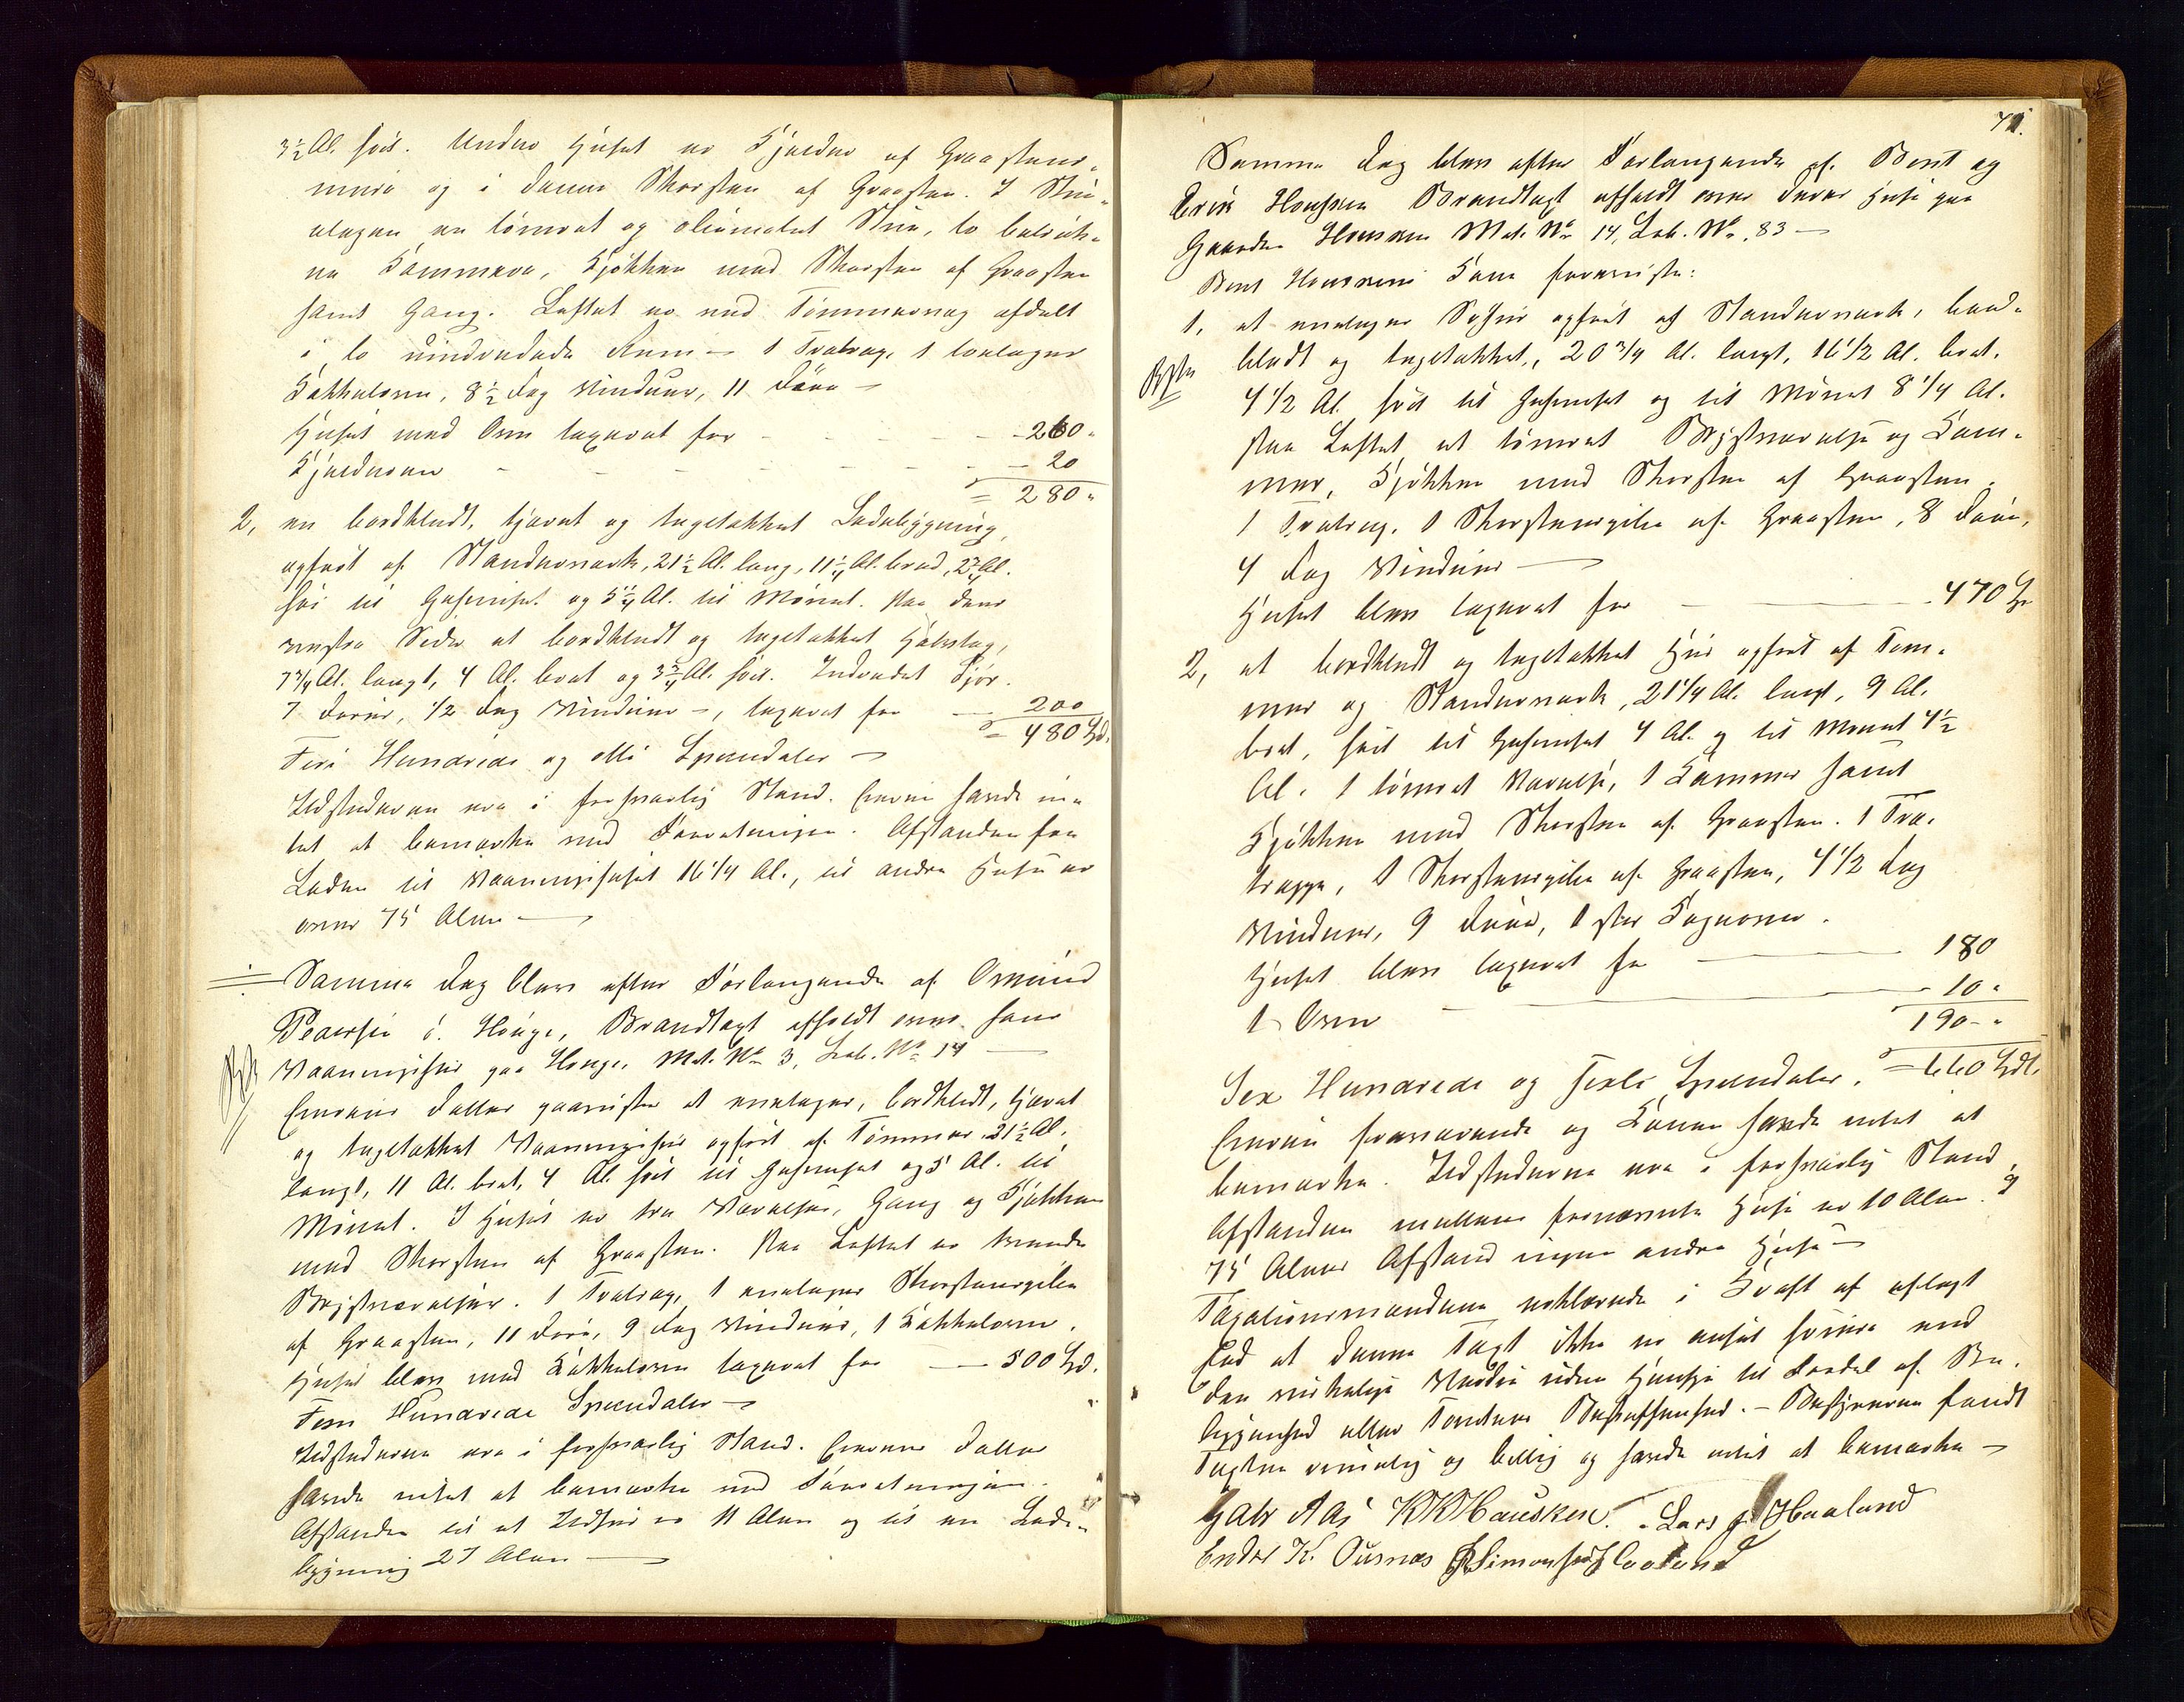 3½ Al. høit. Under Huset er Kjelder af Graasteens-
muur og i denne Skorsteen af Graasteen. I Stue-
etagen en tømret og oliemalet Stue, to beboede
Kammere, Kjøkken med Skorsteen af Graasteen
samt Gang. Loftet er med Tømmervæg afdelt
i to uindredede Rum – 1 Trætrap, 1 toetages
Kakkelovn, 8½ Fag Vinduer, 11 Døre –
Huset med Ovn taxeret for - 260 "
Kjelderen - 20
= 280 "
2, en bordklædt, tjæret og tagstakket Ladebygning,
opført af Standerværk, 21½ Al. lang, 11¼ Al. bred, 2¾ Al.
høi til Gesimset og 5¼ Al. til Mønet. Paa dens
vestre Side et bordklædt og tagstakket Halvtag,
7¾ Al. langt, 4 Al. bredt og 3¾ Al. høit. Indredet Fjøs.
7 Døre, 1/2 Fag Vinduer –, taxeret for - 200
= 480 Spd.
Fire Hundrede og otti Speciedaler –
Ildstederne ere i forsvarlig Stand. Eieren havde in-
tet at bemærke ved Forretningen. Afstanden fra
Laden til Vaaningshuset 16¼ Al., til andre Huse er
over 75 Alen –
Samme Dag blev efter Forlangende af Osmund
Pedersen ö. Hauge, Brandtaxt afholdt over hans
Vaaningshus paa Hauge, Mat. No 3, Løb. No 14 –
Eierens Datter paaviste et eenetages, bordklædt, tjæret
og tagstakket Vaaningshus opført af Tømmer 21½ Al.
langt, 11 Al. bredt, 4 Al. høit til Gesimset og 5 Al. til
Mønet. I Huset er tre Værelser, Gang og Kjøkken
med Skorsteen af Graasteen. Paa Loftet er tvende
Brystværelser. 1 Trætrap, 1 eenetages Skorsteenspibe
af Graasteen, 11 Døre, 9 Fag Vinduer, 1 Kakkelovn.
Huset blev med Kakkelovn taxeret for — 500 Spd.
Fem Hundrede Speciedaler –
Ildstederne ere i forsvarlig Stand. Eierens Datter
havde intet at bemærke ved Forretningen.
Afstanden til et Ildhus er 11 Alen og til en Lade-
bygning 27 Alen –
71.
Samme Dag blev efter Forlangende af Bent og
Brandtaxt afholdt over deres Huse paa
Gaarden Mat. No 14, Løb. No 83 –
Bent Kone foreviste:
1, et eenetages Søhus opført af Standerværk, bord-
klædt og tagstakket, 20 3/4 Al. langt, 16 1/2 Al. bredt.
4 1/2 Al. høit til Gesimset og til Mønet 8 1/4 Al.
Paa Loftet et tømret Brystværelse og Kam-
mer, Kjøkken med Skorsteen af Graasteen.
1 Trætrap, 1 Skorsteenspibe af Graasteen, 8 Døre,
4 Fag Vinduer –
Huset blev taxeret for - 470 Sp
2, et bordklædt og tagstakket Hus opført af Tøm-
mer og Standerværk, 21 1/4 Al. langt, 9 Al.
bredt, høit til Gesimset 4 Al. og til Mønet 4½
Al. 1 tømret Værelse, 1 Kammer samt
Kjøkken med Skorsteen af Graasteen. 1 Træ-
trappe, 1 Skorsteenspibe af Graasteen, 4 1/2 Fag
Vinduer, 9 Døre, 1 stor
Huset blev taxeret for - 180
1 Ovn - 10 "
190 - "
Sex Hundrede og sexti Speciedaler. = 660 Spdl.
Eieren fraværende og Konen havde intet at
bemærke. Ildstederne ere i forsvarlig Stand,
Afstanden mellem fornævnte Huse er 10 Alen. I
75 Alens Afstand ingen andre Huse –
Taxationsmændene erklærede i Kraft af aflagt
Eed at denne Taxt ikke er ansat høiere end
den virkelige Værdie uden Hensyn til Fordel af Be-
liggenhed eller Tomtens Beskaffenhed. – Bestyreren fandt
Taxten rimelig og billig og havde intet at bemærke –
Gabr Aas KKHausken. Lars J Haaland
Endre K. Øvsnæs PSimonsen Haaland